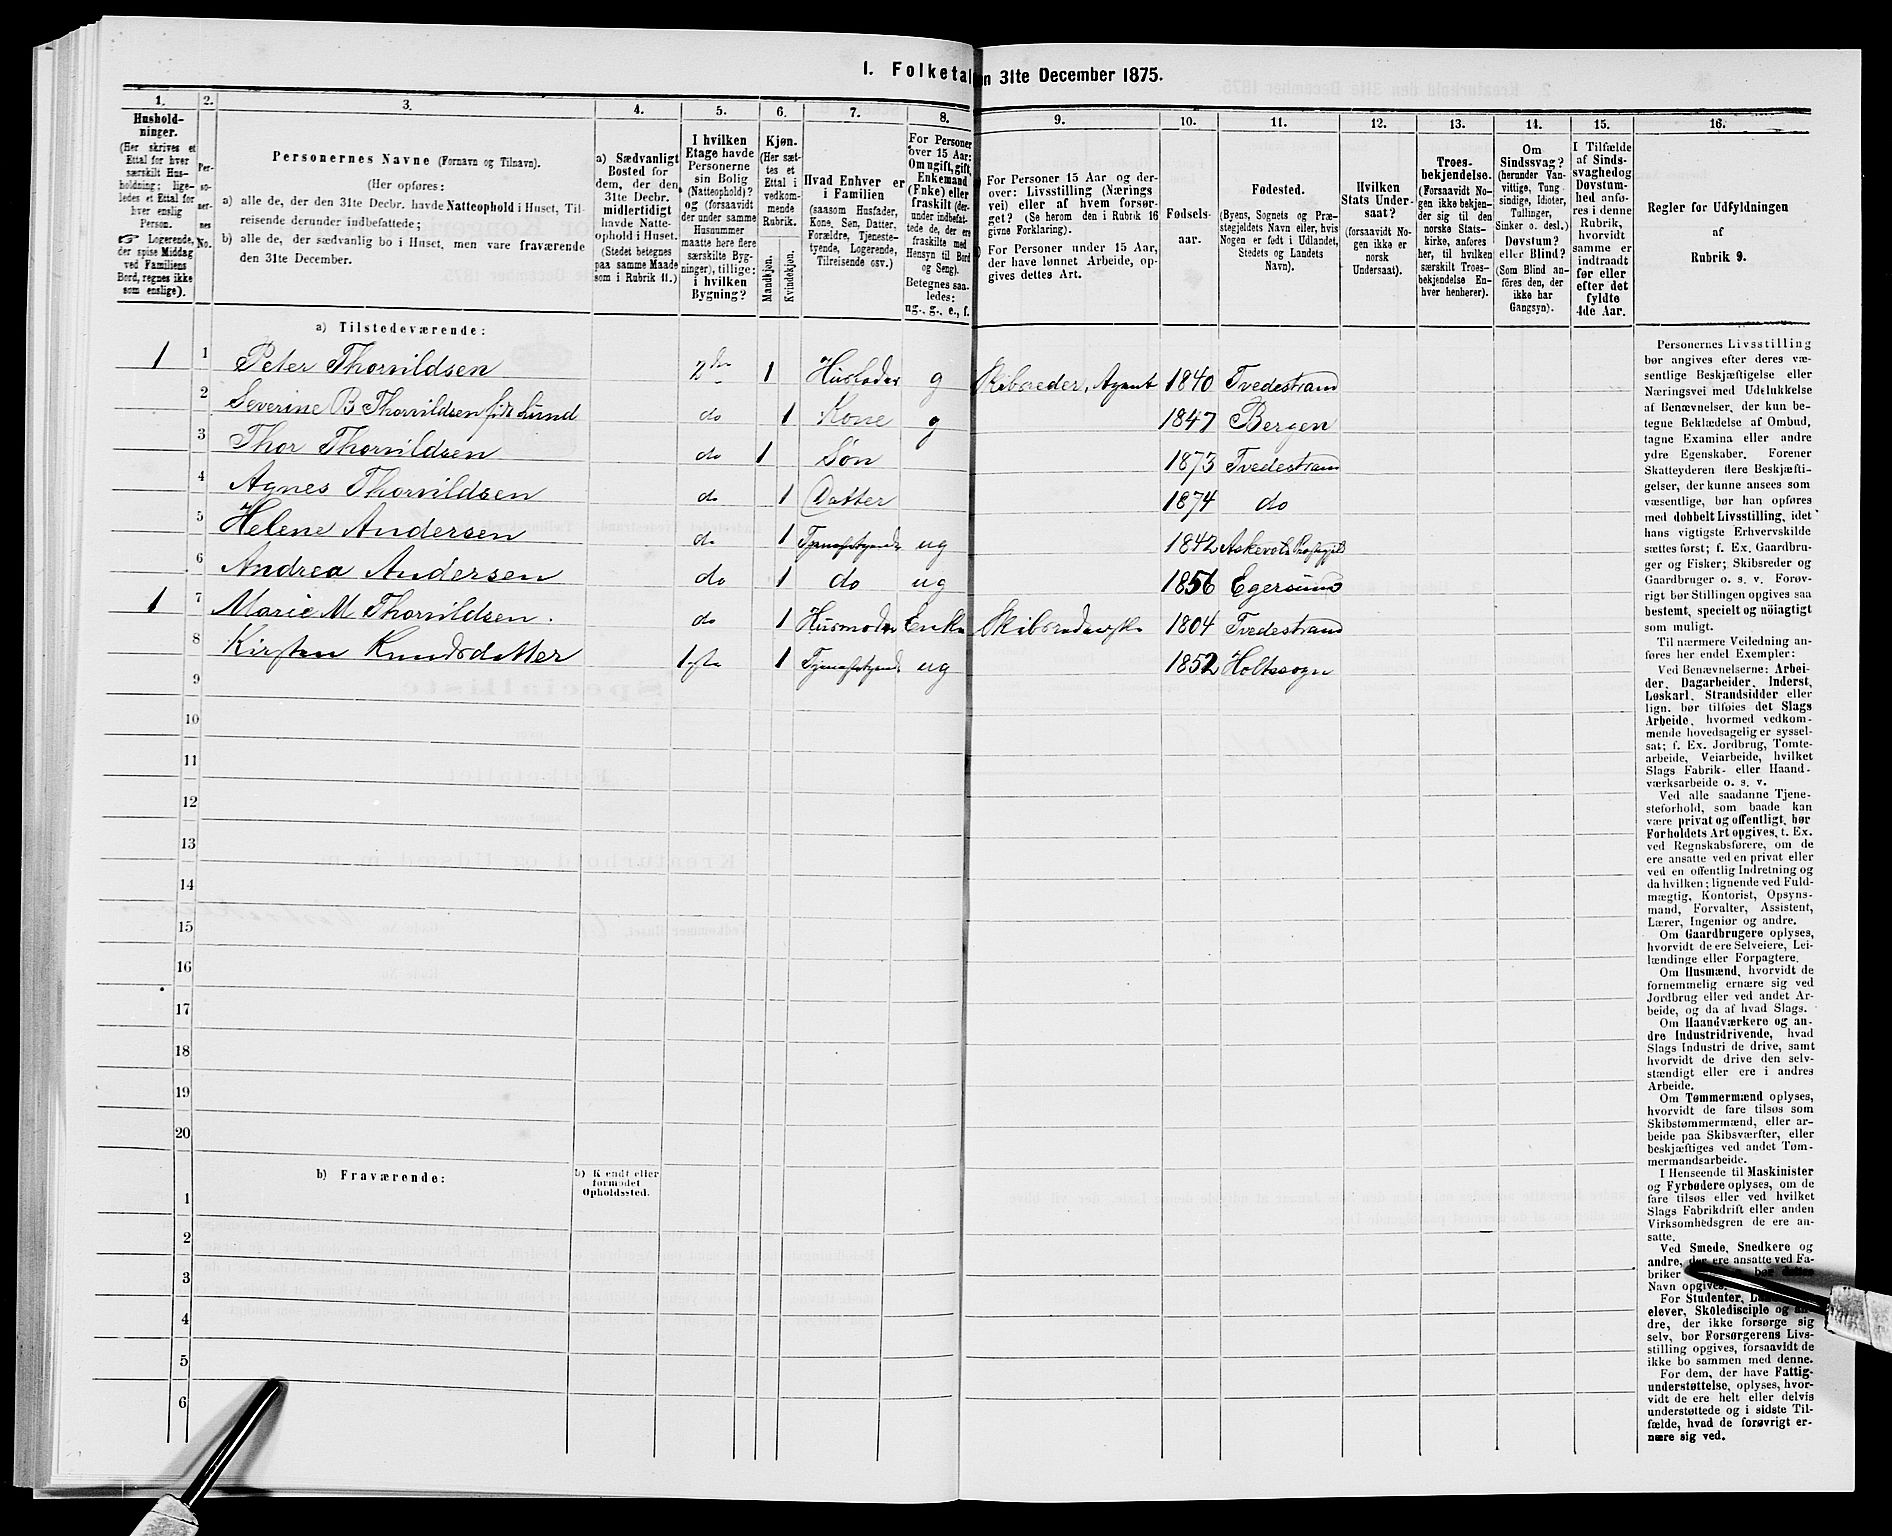 I. Folketal 31te December 1875.
1. 2. 3. 4. 5. 6. 7. 8. 9. 10. 11. 12. 13. 14. 15. 16.
Husholdninger.
(Her skrives et
Ettal for hver
særskilt Hus-
holdning; lige-
ledes et Ettal for
hver enslig
Person.
Logerende,
der spise Middag
ved Familiens
Bord, regnes ikke
som enslige).
Per-
so-
ner-
nes
No.
Personernes Navne (Fornavn og Tilnavn).
(Her opføres:
a) alle de, der den 31te Decbr. havde Natteophold i Huset, Til-
reisende derunder indbefattede;
b) alle de, der sædvanlig bo i Huset, men vare fraværende
den 31te December.
a) Sædvanligt
Bosted for
dem, der den
31te Decbr.
midlertidigt
havde Natte-
ophold i Huset.
(Stedet betegnes
paa samme Maade
som i Rubrik 11.)
I hvilken
Etage havde
Personerne
sin Bolig
(Natteophold)?
og (forsaavidt
der under samme
Husnummer
maatte høre flere
særskilte Byg-
ninger), tillige:
i hvilken
Bygning?
Kjøn.
(Her sæt-
tes et
Ettal i
vedkom-
mende
Rubrik.
Mandkjøn.
Kvindekjøn.
Hvad Enhver er
i Familien
(saasom Husfader,
Kone, Søn, Datter,
Forældre, Tjeneste-
tyende, Logerende,
Tilreisende osv.)
For Personer
over 15 Aar:
Om ugift, gift,
Enkemand
(Enke) eller
fraskilt (der-
under indbefat-
tede de, der ere
fraskilte med
Hensyn til Bord
og Seng).
Betegnes saa-
ledes:
ug., g., e., f.
For Personer 15 Aar og der-
over: Livsstilling (Nærings
vei) eller af hvem forsør-
get? (Se herom den i Rubrik 16
givne Forklaring).
For Personer under 15 Aar,
der have lønnet Arbeide, op-
gives dettes Art.
Fødsels-
aar.
Fødested.
(Byens, Sognets og Præ-
stegjeldets Navn eller, hvis
Nogen er født i Udlandet,
Stedets og Landets
Navn).
Hvilken
Stats Under-
saat?
(forsaavidt No-
gen ikke er
norsk
Undersaat).
Troes-
bekjendelse.
(Forsaavidt No-
gen ikke bekjen-
der sig til den
norske Stats-
kirke, anføres
her, til hvilken
særskilt Troes-
bekjendelse En-
hver henhører).
Om
Sindssvag?
(herunder Van-
vittige, Tung
sindige, Idioter,
Tullinger,
Sinker o. desl.)
Døvstum?
eller Blind?
(Som Blind an-
føres den, der
ikke har
Gangsyn).
I Tilfælde
af Sinds-
svaghed og
Døvstum-
hed anfø-
res i denne
Rubrik,
hvorvidt
samme er
indtraadt
før eller
efter det
fyldte
4de Aar.
Regler for Udfyldningen
af
Rubrik 9.
a) Tilstedeværende:
1 1 Peter Thorvildsen 2den 1 Husfader g Skibsreder, Agent 1840 Tvedestrand
2 Severine B Thorvildsen født Lund do 1 Kone g 1847 Bergen
3 Thor Thorvildsen do 1 Søn 1873 Tvedestrand
4 Agnes Thorvildsen do 1 Datter 1874 do
5 Helene Andersen do 1 Tjenestetyende ug 1842 Askevold Præstegjeld
6 Andrea Andersen do 1 do ug 1856 Egersund
1 7 Marie M Thorvildsen. do 1 Husmoder Enke 1804 Tvedestrand
8 Kirsten Knudsdatter 1ste 1 Tjenestetyende ug 1852 Holtssogn
9
10
11
12
13
14
15
16
17
18
19
20
b) Fraværende:
b) Kjendt eller
formodet
Opholdssted.
1
2
3
4
5
6
Personernes Livsstilling
bør angives efter deres væ-
sentlige Beskjæftigelse eller
Næringsvei med Udelukkelse
af Benævnelser, der kun be-
tegne Beklædelse af Ombud,
tagne Examina eller andre
ydre Egenskaber. Forener
Skatteyderen flere Beskjæfti-
gelser, der kunne ansees som
væsentlige, bør han opføres
med dobbelt Livsstilling, idet
hans vigtigste Erhvervskilde
sættes først; f. Ex. Gaardbru-
ger og Fisker; Skibsreder og
Gaardbruger o. s. v. Forøv-
rigt bør Stillingen opgives saa
bestemt, specielt og nöiagtigt
som muligt.
Til nærmere Veiledning an-
føres her endel Exempler:
Ved Benævnelserne: Arbei-
der, Dagarbeider, Inderst,
Løskarl, Strandsidder eller
lign. bør tilføies det Slags
Arbeide, hvormed vedkom-
mende hovedsagelig er syssel-
sat; f. Ex. Jordbrug, Tomte-
arbeide, Veiarbeide, hvilket
Slags Fabrik- eller Haand-
værksarbeide o. s. v.
Ved alle saadanne Tjene-
steforhold, som baade kan
være privat og offentligt, bør
Forholdets Art opgives, t. Ex.
ved Regnskabsførere, om de
ere ansatte ved en privat eller
ved en offentlig Indretning og
da hvilken; lignende ved Fuld-
mægtig, Kontorist, Opsyns-
mand, Forvalter, Assistent,
Lærer, Ingeniør og andre.
Om Gaardbrugere oplyses,
hvorvidt de ere Selveiere, Lei-
lændinge eller Forpagtere.
Om Husmænd, hvorvidt de
fornemmelig ernære sig ved
Jordbrug eller ved andet Ar-
beide, og da af hvad Slags.
Om Haandværkere og an-
dre Industridrivende, hvad
Slags Industri de drive, samt
hvorvidt de drive den selv-
stændigt eller ere i andres
Arbeide.
Om Tømmermænd oplyses,
hvorvidt de fare tilsøs som
Skibstømmermænd, eller ar-
beide paa Skibsværfter, eller
beskjæftiges ved andet Tøm-
mermandsarbeide.
I Henseende til Maskinister
og Fyrbødere oplyses, om de
fare tilsøs eller ved hvilket
Slags Fabrikdrift eller anden
Virksomhedsgren de ere an-
satte.
Ved Smede, Snedkere og
andre, der ere ansatte ved Fa-
briker bør dettes
Navn opgives.
For Studenter,
elever, Skoledisciple og an-
dre, der ikke forsørge sig
selv, bør Forsørgerens Livs-
stilling opgives, forsaavidt de
ikke bo sammen med denne.
For dem, der have Fattig-
understøttelse, oplyses, hvor-
vidt de ere helt eller delvis
understøttede og i sidste Til-
fælde, hvad de forøvrigt er-
nære sig ved.